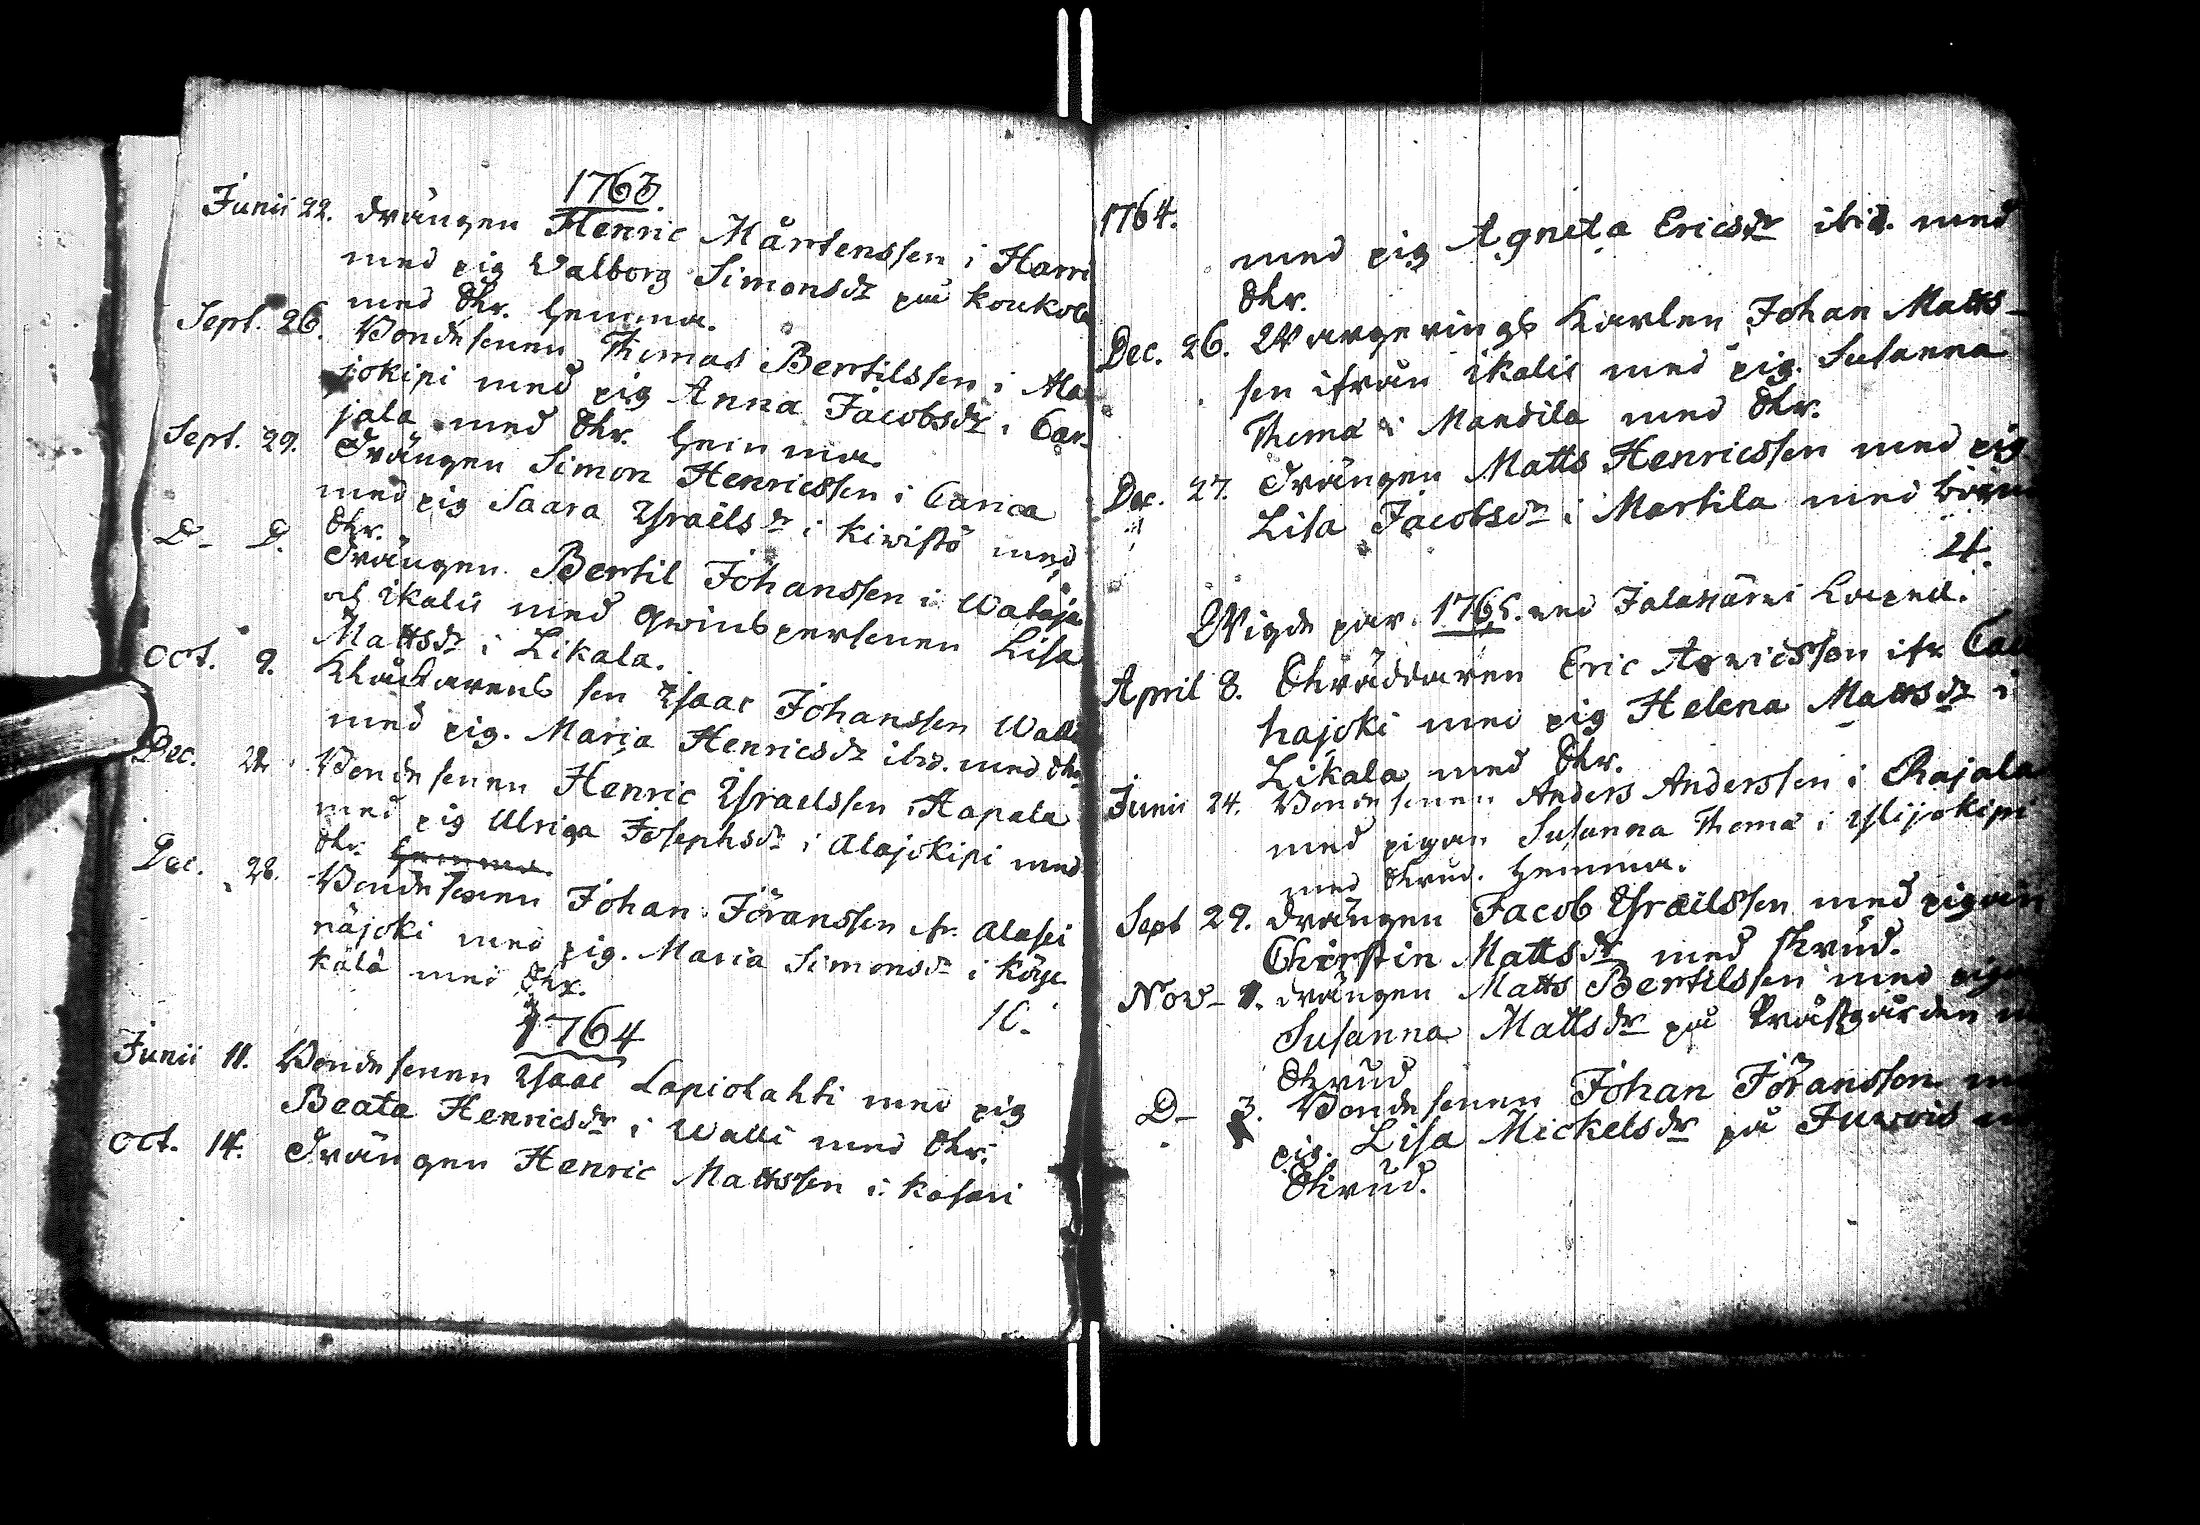 1763.
Junii 22. drängen Henric Mårtenssen i Harri
med pig Walborg Simonsdr på Koukola
med Skr. hemma.
Sept. 26. Bondesonen Thomas Bertilssen i Ala
jokipi med pig Anna Jacobsdr i Car-
jala med Skr. hemma.
Sept. 29. Drängen Simon Henricssen i Carica
med pig Saara Ysraëlsdr i Kiwistö med
Skr.
D- D. Drängen Bertil Johanssen i Walaja
af Ikalis med qwinspersonen Lisa
Mattsdr i Likala.
Oct. 9. Klåckarens son Ysaac Johanssen Walli
med pig. Maria Henricsdr ibid. med Skr.
Dec. 22. Bondesonen Henric Ysraelssen i Hapala
med pig Ulrica Josephsdr i Alajokipi med
Skr. hemma.
Dec. 28. Bondesonen Johan Jöranssen fr. Alasei
näjoki med pig. Maria Simonsdr i Körje
kälä med Skr.
10.
1764
Junii 11. Bondesonen Ysaac Lapiolahti med pig
Beata Henricsdr i Walli med Skr.
Oct. 14. Drängen Henric Mattssen i Kasari
1764.
med pig Agneta Ericsdr ibid. med
Skr.
Dec. 26. Wargerings Karlen Johan Matts-
sen ifrån Ikalis med pig. Susanna
Thoma i Mandila med Skr.
Dec. 27. Drängen Matts Henricssen med pig
Lisa Jacobsdr i Martila med
Wigde par. 1765. wed Jalasjärvi Capell.
April 8. Skräddaren Eric Arvidsson ifr. Cau
hajoki med pig Helena Mattsdr i
Likala med Skr.
Junii 24. Bondesonen Anders Anderssen i Rajala
med pigan Susanna Thoma i Ylijokipi
med Skrud. hemma.
Sept 29. drängen Jacob Ysraëlssen med pigan
Christin Mattsdr med skrud.
Nov- 1. drängen Matts Bertilssen med
Susanna Mattsdr på Prästgården
Skrud
D- 3. Bondesonen Johan Jöransson
pig. Lisa Mickelsdr på
Skrud.